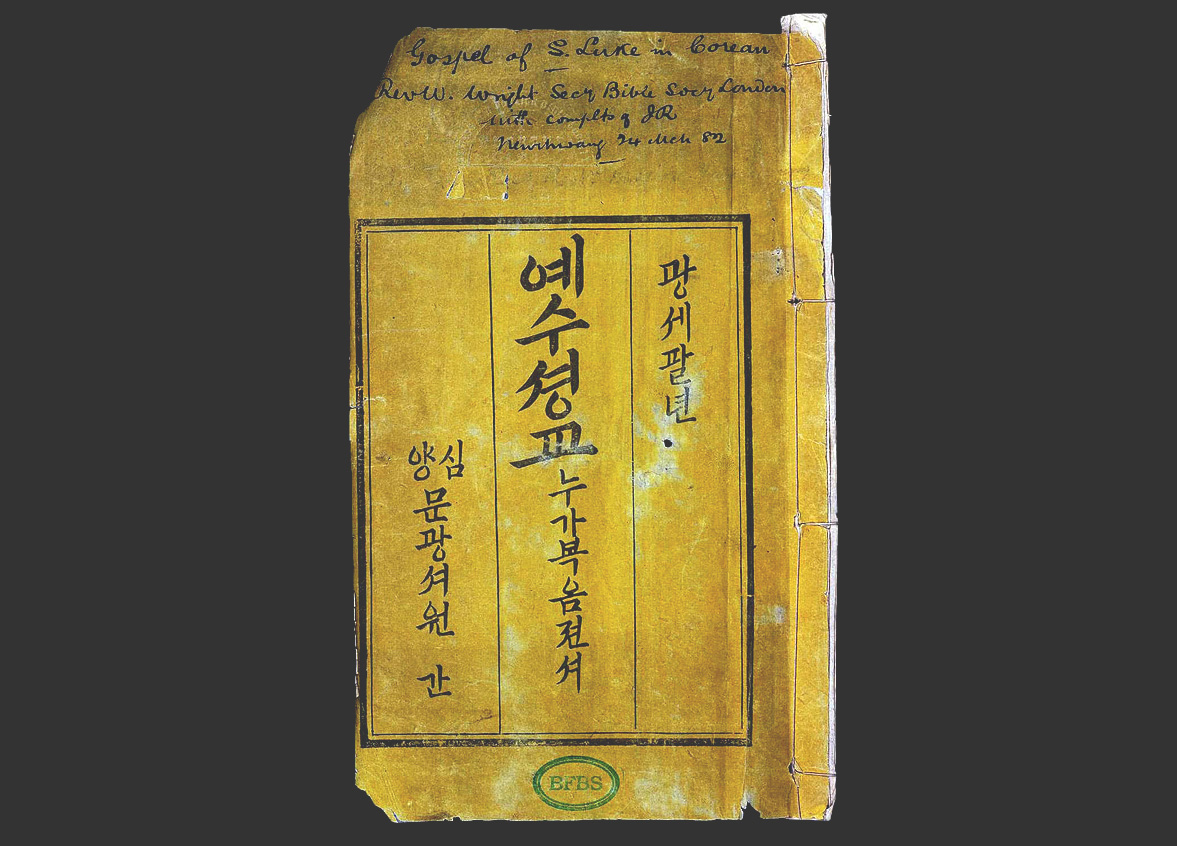 Gospel of S. Luke in Corean
Rev W. Wright Secy Bible Socy London
with complts of JR
Newchwang 24 Mch 82
광세팔년
예수셩교누가복음젼셔
심양문광셔원 간
BFBS